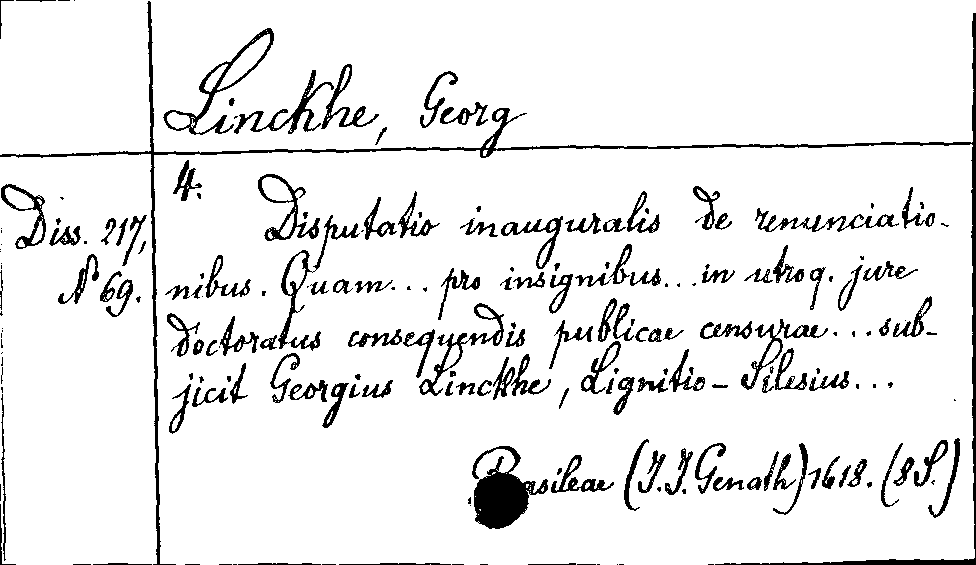 Linckhe, Georg
4.
Diss. 217,
N 69.
Disputatio inauguralis de renunciatio-
nibus. Quam... pro insignibus... in utroq. jure
doctoratus consequendis publicae censurae... sub-
jicit Georgius Linckhe, Lignitio-Silesius...
Basileae (J.J. Genath) 1618. (8 S.)